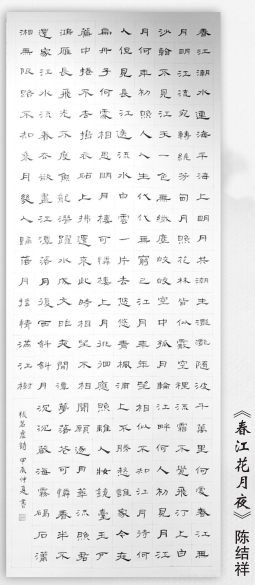 春江潮水連海平海上明月共潮生灩灩隨波千萬里何處春江無
月明江流宛轉繞芳甸月照花林皆似霰空裏流霜不覺飛汀上白
沙看不見江天一色無纖塵皎皎空中孤月輪江畔何人初見月江
月何年初照人人生代代無窮已江月年年望相似不知江月待何
人但見長江送流水白雲一片去悠悠青楓浦上不勝愁誰家今夜
扁舟子何處相思明月樓可憐樓上月徘徊應照離人妝鏡臺玉戶
簾中捲不去搗衣砧上拂還來此時相望不相聞願逐月華流照君
鴻雁長飛光不度魚龍潛躍水成文昨夜閒潭夢落花可憐春半不
還家江水流春去欲盡江潭落月復西斜斜月沉沉藏海霧碣石瀟
湘無限路不知乘月幾人歸落月搖情滿江樹
張若虛詩 甲辰仲夏書
《春江花月夜》陈结祥